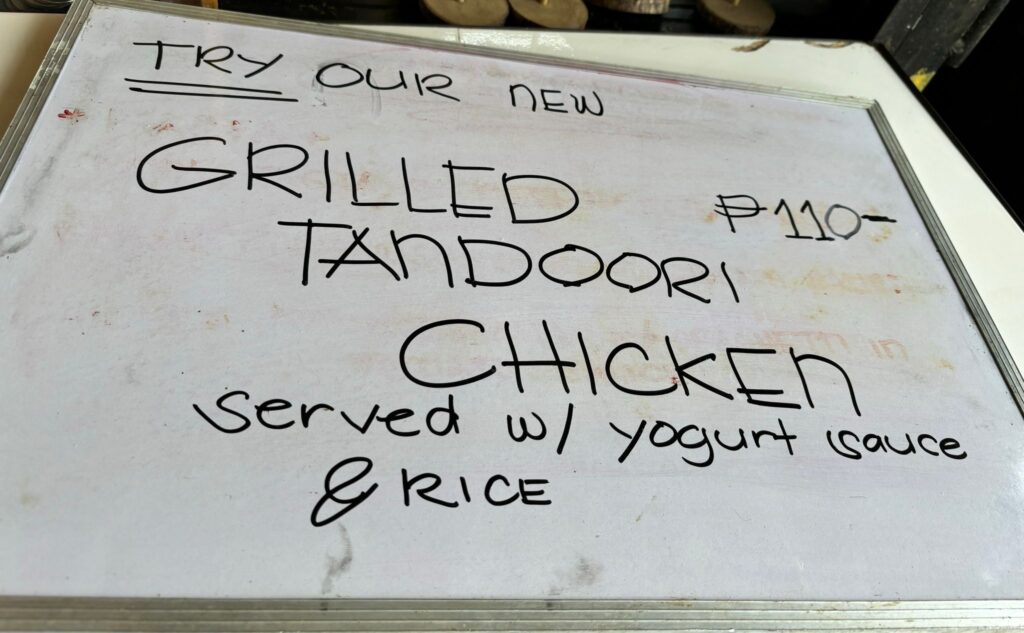 TRY OUR NEW
GRILLED
₱110-
TANDOORI
CHICKEN
served w/ yogurt sauce
& RICE